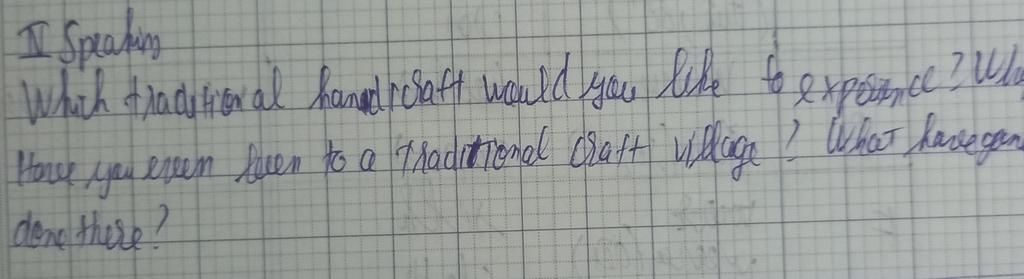 II Speaking
Which traditional handicraft would you like to experience? Why
Have you ever been to a traditional craft village? What have you
done there?